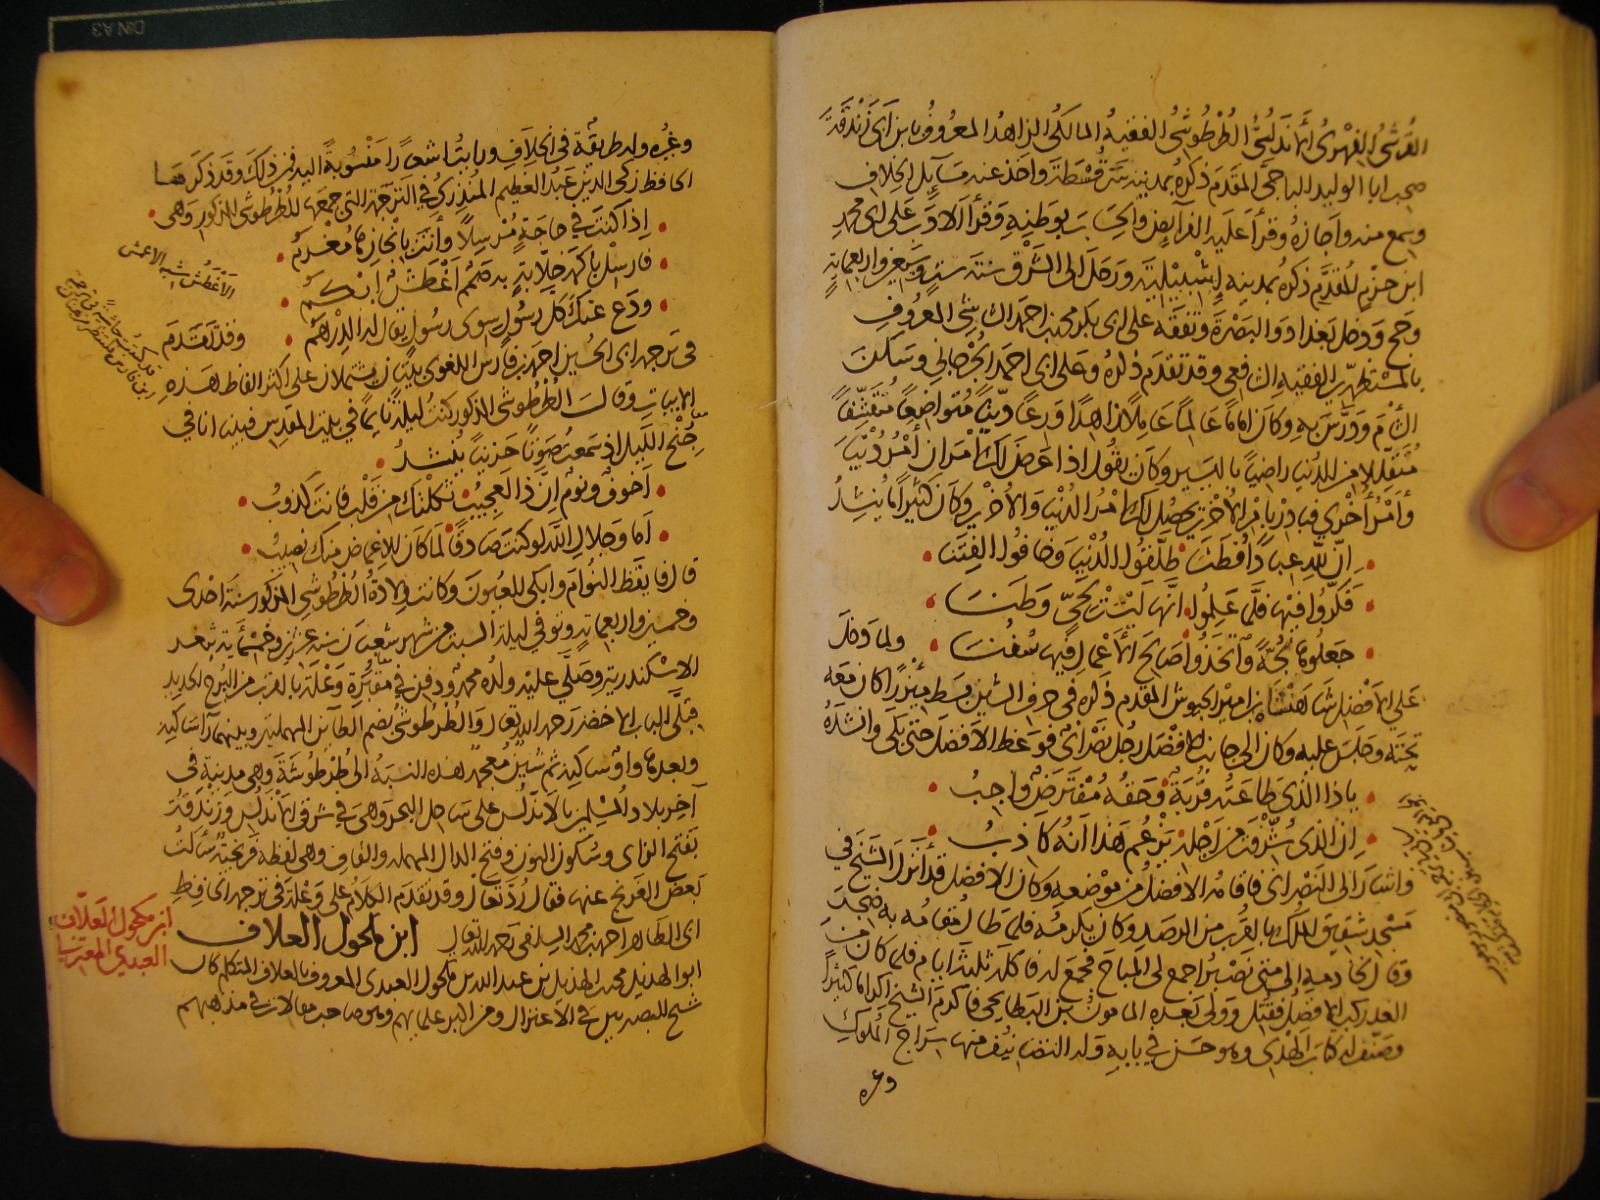 القرشي الفهري الاندلسي الطرطوشي الفقيه المالكي الزاهد المعروف بابن ابي رندقة
صحب ابا الوليد الباجي المقدم ذكره بمدينة سرقسطة واخذ عنه مسايل الخلاف
وسمع منه واجازه وقرأ عليه الفرايض والحساب بوطنه وقرأ الادب على ابي محمد
ابن حزم المقدم ذكره بمدينة إشبيلية ورحل الى الشرق سنة ست وسبعين واربعماية
وحج ودخل بغداد والبصرة وتفقه على ابي بكر محمد بن احمد الشاشي المعروف
بالمستظهري الفقيه الشافعي وقد تقدم ذكره وعلى ابي احمد الجرجاني وسكن
الشام ودرس به وكان اماما عالما عاملا زاهدا ورعا دينا متواضعا متقشفا
متقللا من الدنيا راضيا باليسير وكان يقول اذا عرض لك امران أمر دنيا
وأمر أخرى فبادر بامر الاخرى يحصل لك امر الدنيا والاخرى وكان كثيرا ما ينشد
إن لله عبادا فطنا طلقوا الدنيا وخافوا الفتنا
فكروا فيها فلما علموا انها ليست لحي وطنا
جعلوها لجة واتخذوا صالح الأعمال فيها سفنا ولما دخل
على الافضل شاهنشاه بن امير الجيوش المقدم ذكره في حرف الشين بسط ميزرا كان معه
تحته وجلس عليه وكان الى جانب الافضل رجل نصراني فوعظ الافضل حتى بكى وانشده
ياذا الذي طاعته قربة وحقه مفترض واجب
إن الذي شرفت من اجله يزعم هذا انه كاذب
واشار الى النصراني فاقامه الافضل من موضعه وكان الافضل قد أنزل الشيخ في
مسجد شقيق الملك بالقرب من الرصد وكان يكرهه فلما طال مقامه به ضجر
وقال لخادمه الى متى نصبر اجمع لي المباح فجمع له فاكله ثلثة ايام فلما كان
الغد ركب الافضل فقتل وولي بعده المامون بن البطايحي فاكرم الشيخ اكراما كثيرا
وصنف له كتاب الهدي وهو حسن في بابه وله التصانيف منها سراج الملوك
وغيره
وغيره وله طريقة في الخلاف ورايت اشعارا منسوبة اليه فمن ذلك وقد ذكرهما
الحافظ زكي الدين عبد العظيم المنذري في الترجمة التي جمعها للطرطوشي المذكور وهي
إذا كنت في حاجة مرسلا وأنت بانجازها مغرم
فارسل باكمه جلابة به صمم أغطش ابكم
ودع عنك كل رسول سوى رسول يقال له الدرهم وقد تقدم
في ترجمة ابي الحسين احمد بن فارس اللغوي بيتان يشتملان على اكثر الفاظ هذه
الابيات وقال الطرطوشي المذكور كنت ليلة نايما في بيت المقدس فبينا انا في
جنح الليل اذ سمعت صوتا حزينا ينشد
أخوف ونوم إن ذا لعجيب ثكلتك من قلب فانت كذوب
أما وجلال الله لو كنت صادقا لما كان للاغماض منك نصيب
قال فايقظ النوام وابكى العيون وكانت ولادة الطرطوشي المذكور سنة احدى
وخمسين واربعماية وتوفي ليلة السبت من شهر شعبان سنة عشرين وخمسماية بثغر
الاسكندرية وصلى عليه ولده محمد ودفن في مقبرة وعلة بالقرب من البرج الجديد
قبلي الباب الاخضر رحمه الله تعالى والطرطوشي بضم الطاين المهملة وبينهما را ساكنة
وبعدها واو ساكنة ثم شين معجمة هذه النسبة الى طرطوشة وهي مدينة في
آخر بلاد المسلمين بالاندلس على ساحل البحر وهي في شرقي الاندلس ورندقة
بفتح الراى وسكون النون وفتح الدال المهملة والقاف وهي لفظة فرنجية سألت
بعض الفرنج عنها فقال رد تعال وقد تقدم الكلام على وعلة في ترجمة الحافظ
ابي الطاهر احمد بن محمد السلفي رحمه الله تعالى ابن مكحول العلاف
ابو الهذيل محمد بن الهذيل بن عبد الله بن مكحول العبدي المعروف بالعلاف المتكلم كان
شيخ البصريين في الاعتزال ومن اكبر علمايهم وهو صاحب مقالات في مذهبهم
الأغطش شبه الاعمش
ابن مكحول العلاف
العبدي المعتزلي
DIN A3